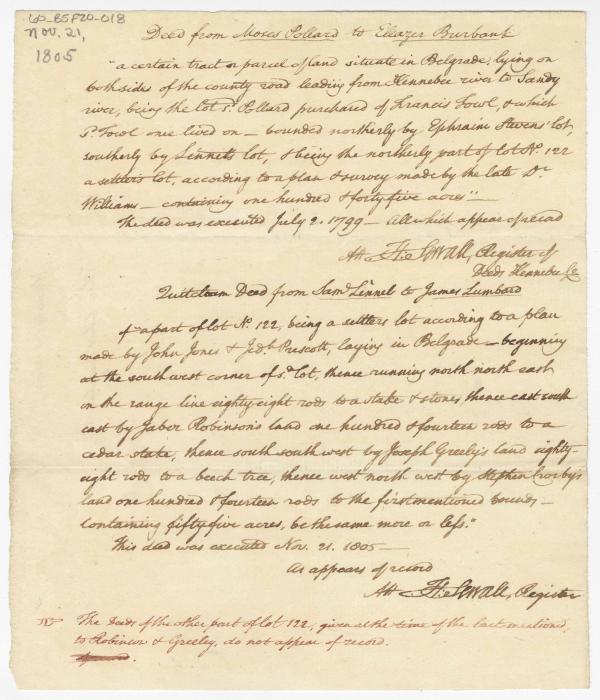 60-B5F20-018
Nov. 21,
1805
Deed from Moses Pollard to Eleazer Burbank
"a certain tract or parcel of land situate in Belgrade, lying on
both sides of the county road leading from Kennebec river to Sandy
river, being the lot sd. Pollard purchased of Francis Fowl, & which
sd. Fowl once lived on — bounded northerly by Ephraim Stevens' lot,
southerly by Linnel's lot, & being the northerly part of lot No. 122
a settlers lot, according to a plan & survey made by the late Dr.
Williams — containing one hundred & forty five acres" —
The deed was executed July 2. 1799 — all which appear of record
Att H. Sewall, Register of
Deeds Kennebec Co
Quitclaim Deed from Saml. Linnel to James Lumbard
of a part of lot No. 122, being a settlers lot according to a plan
made by John Jones & Jedh. Prescott, laying in Belgrade — beginning
at the southwest corner of sd. lot, thence running north north east
on the range line eighty eight rods to a stake & stones, thence east south
east by Jabez Robinson's land one hundred & fourteen rods to a
cedar stake, thence south south west by Joseph Greely's land eighty-
eight rods to a beech tree, thence west north west by Stephen Crosby's
land one hundred & fourteen rods to the first mentioned bounds —
containing fifty five acres, be the same more or less."
This deed was executed Nov. 21. 1805 —
As appears of record
Att H. Sewall, Register
The Deeds of the other part of lot 122, given at the time of the last mentioned,
to Robinson & Greeley, do not appear of record.